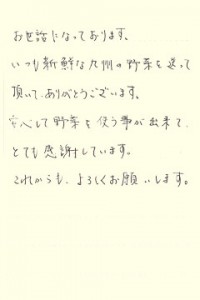 お世話になっております。
いつも新鮮な九州の野菜を送って
頂いて、ありがとうございます。
安心して野菜を使う事が出来て、
とても感謝しています。
これからも、よろしくお願いします。